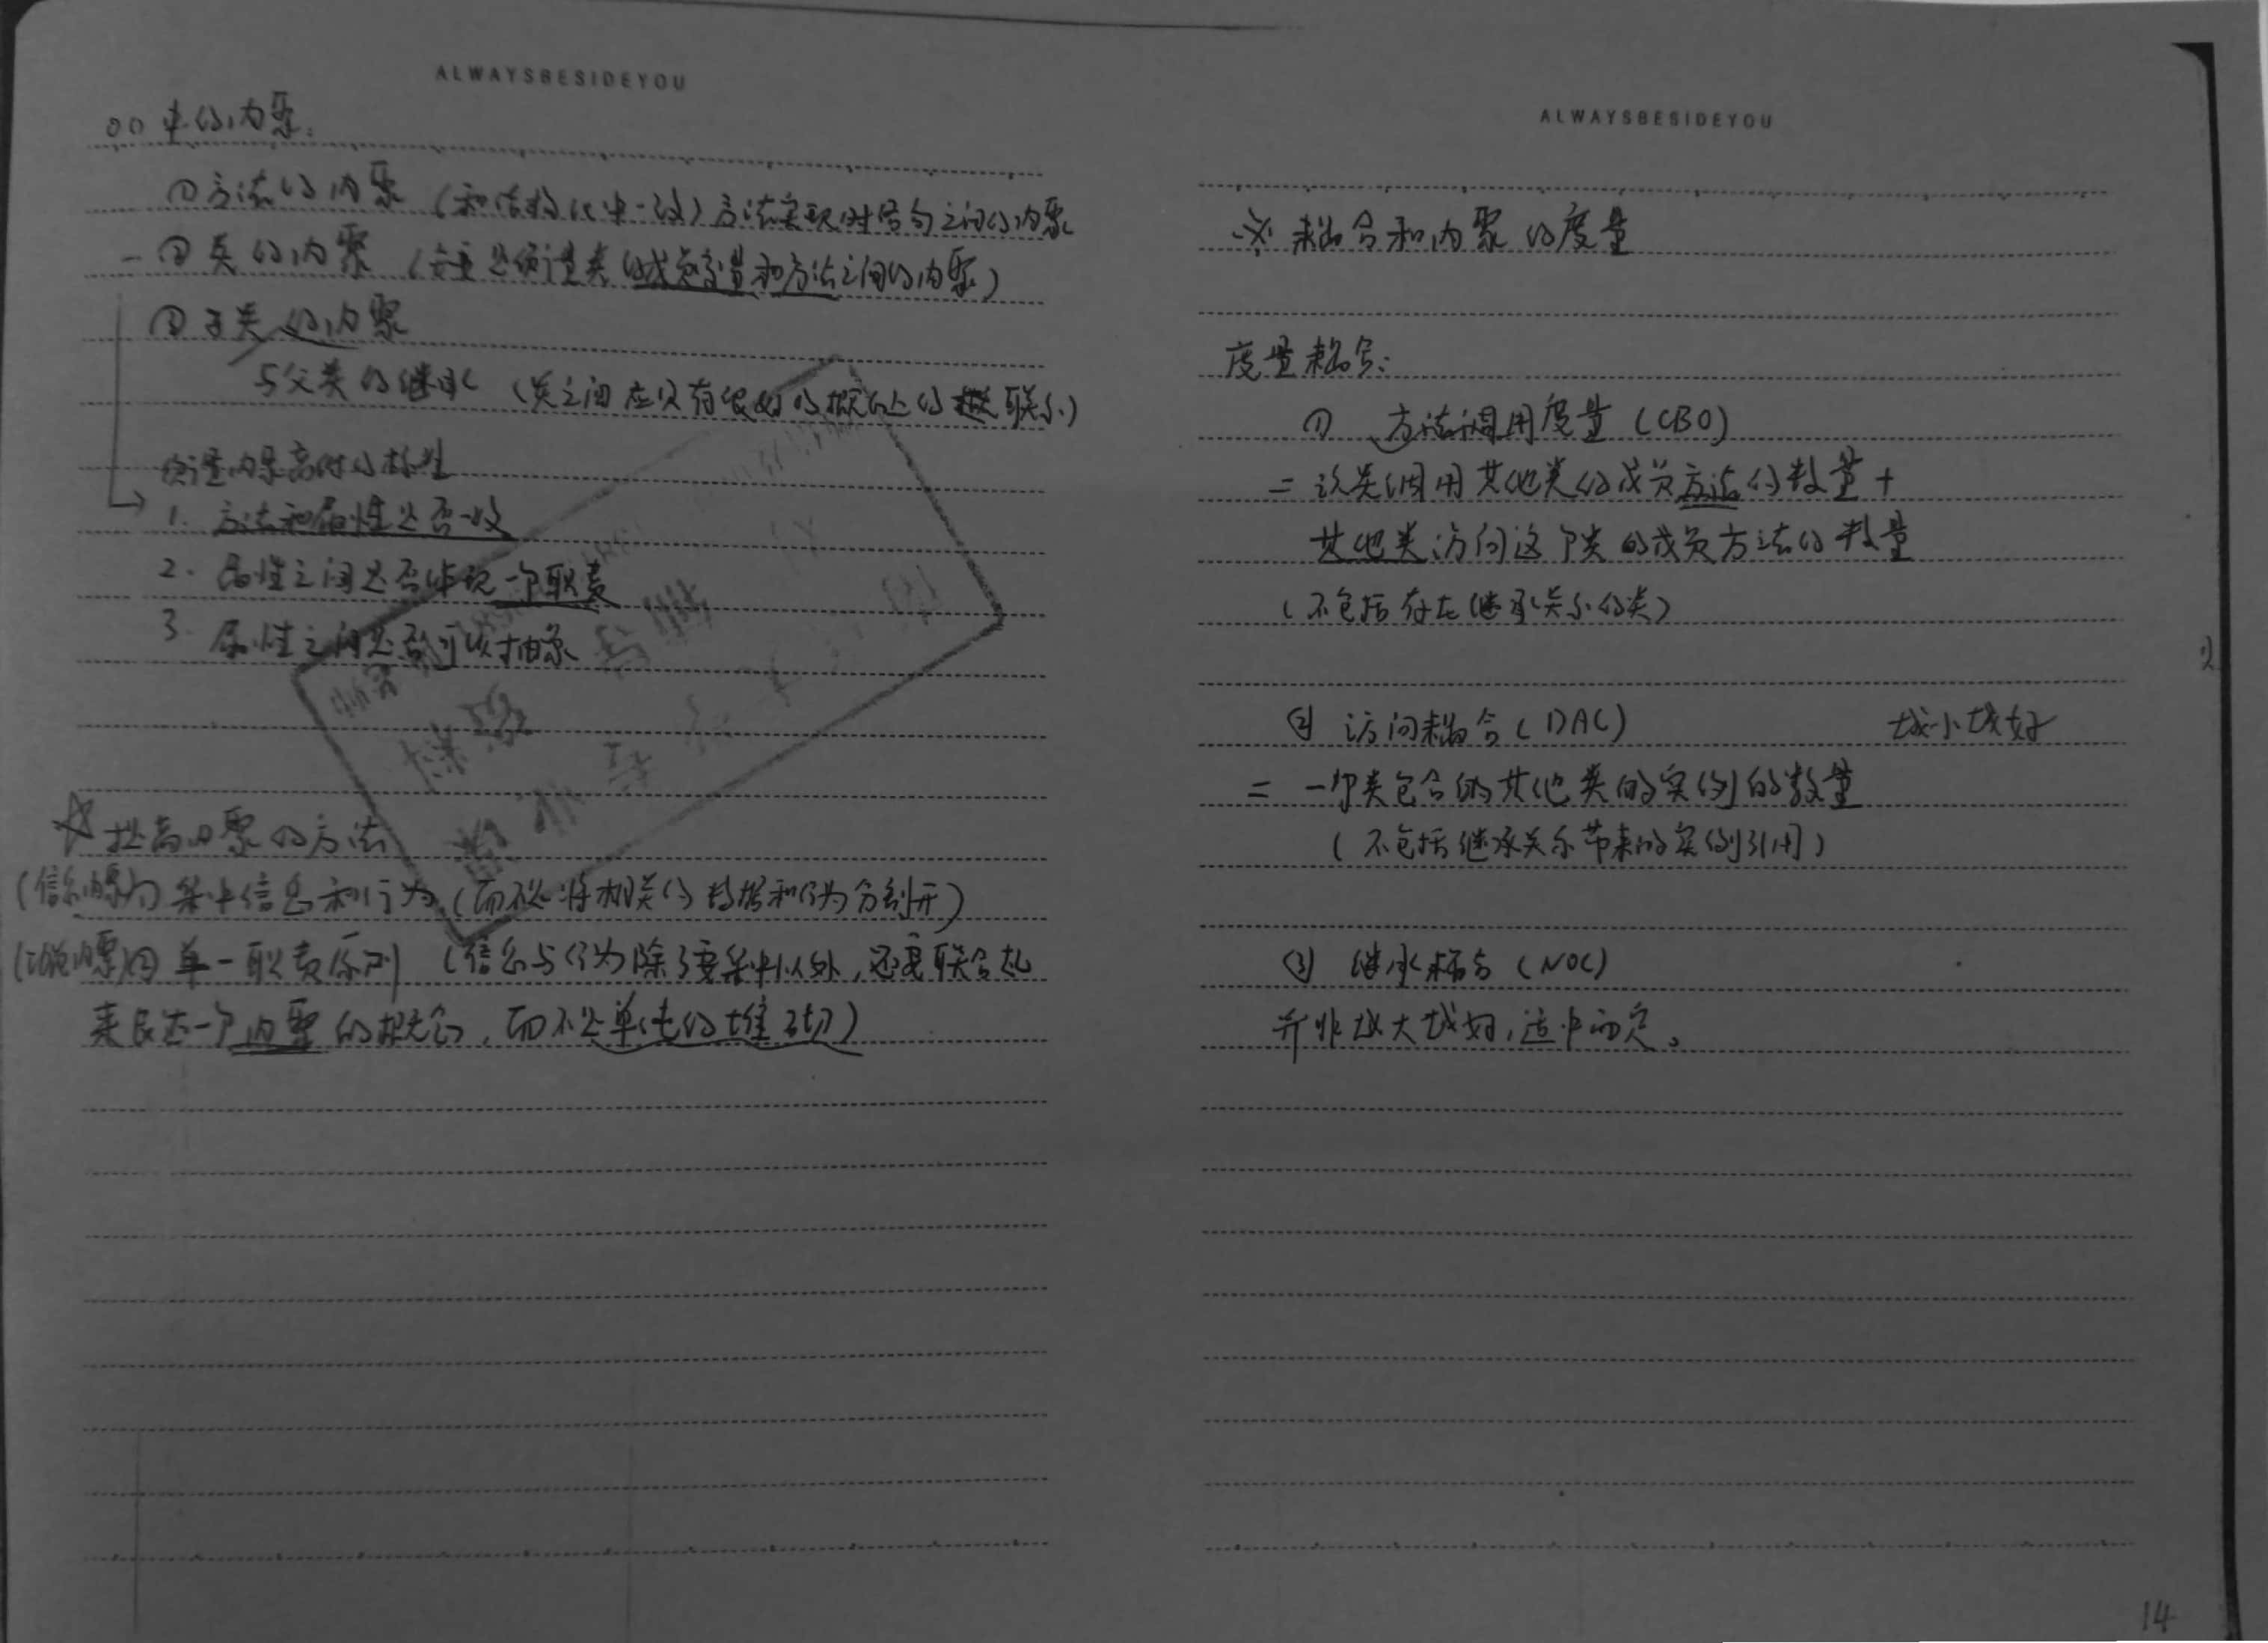 ALWAYSBESIDEYOU
OO中的内聚:
①方法的内聚 (和结构化中一致) 方法实现时语句之间的内聚
②类的内聚 (主要是衡量类的成员变量和方法之间的内聚)
③子类的内聚
与父类的继承 (类之间应具有很好的概化的联系)
衡量内聚高低的标准
1. 方法和属性是否一致
2. 属性之间是否体现一个职责
3. 属性之间是否可以抽象
☆提高内聚的方法
(信息内聚)① 集中信息和行为 (而不是将相关的数据和行为分割开)
(功能内聚)② 单一职责原则 (信息与行为除了要集中以外,还要联合起
来表达一个内聚的概念,而不是单纯的堆砌)
ALWAYSBESIDEYOU
※ 耦合和内聚的度量
度量耦合:
① 方法调用度量 (CBO)
= 该类调用其他类的成员方法的数量 +
其他类访问这个类的成员方法的数量
(不包括存在继承关系的类)
② 访问耦合 (DAC) 越小越好
= 一个类包含的其他类的实例的数量
(不包括继承关系带来的实例引用)
③ 继承耦合 (NOC)
并非越大越好,适中而定。
14